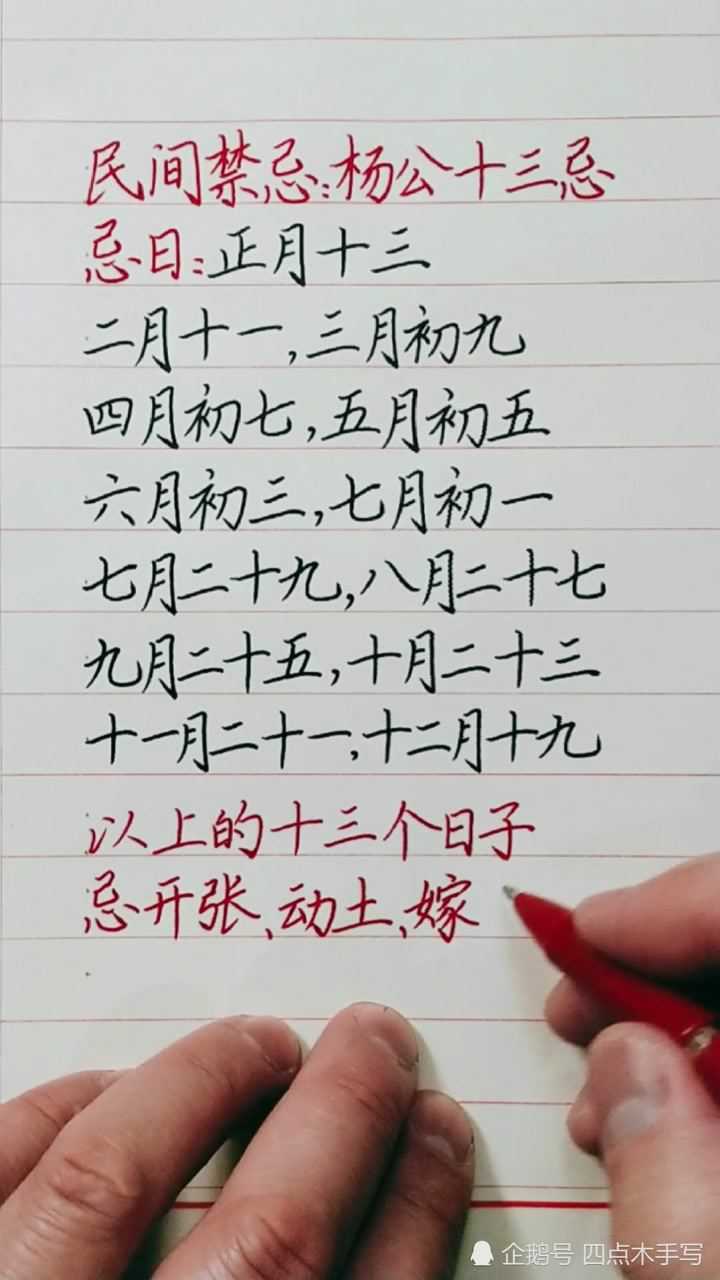 民间禁忌:杨公十三忌
忌日:正月十三
二月十一,三月初九
四月初七,五月初五
六月初三,七月初一
七月二十九,八月二十七
九月二十五,十月二十三
十一月二十一,十二月十九
以上的十三个日子
忌开张、动土、嫁
企鹅号 四点木手写